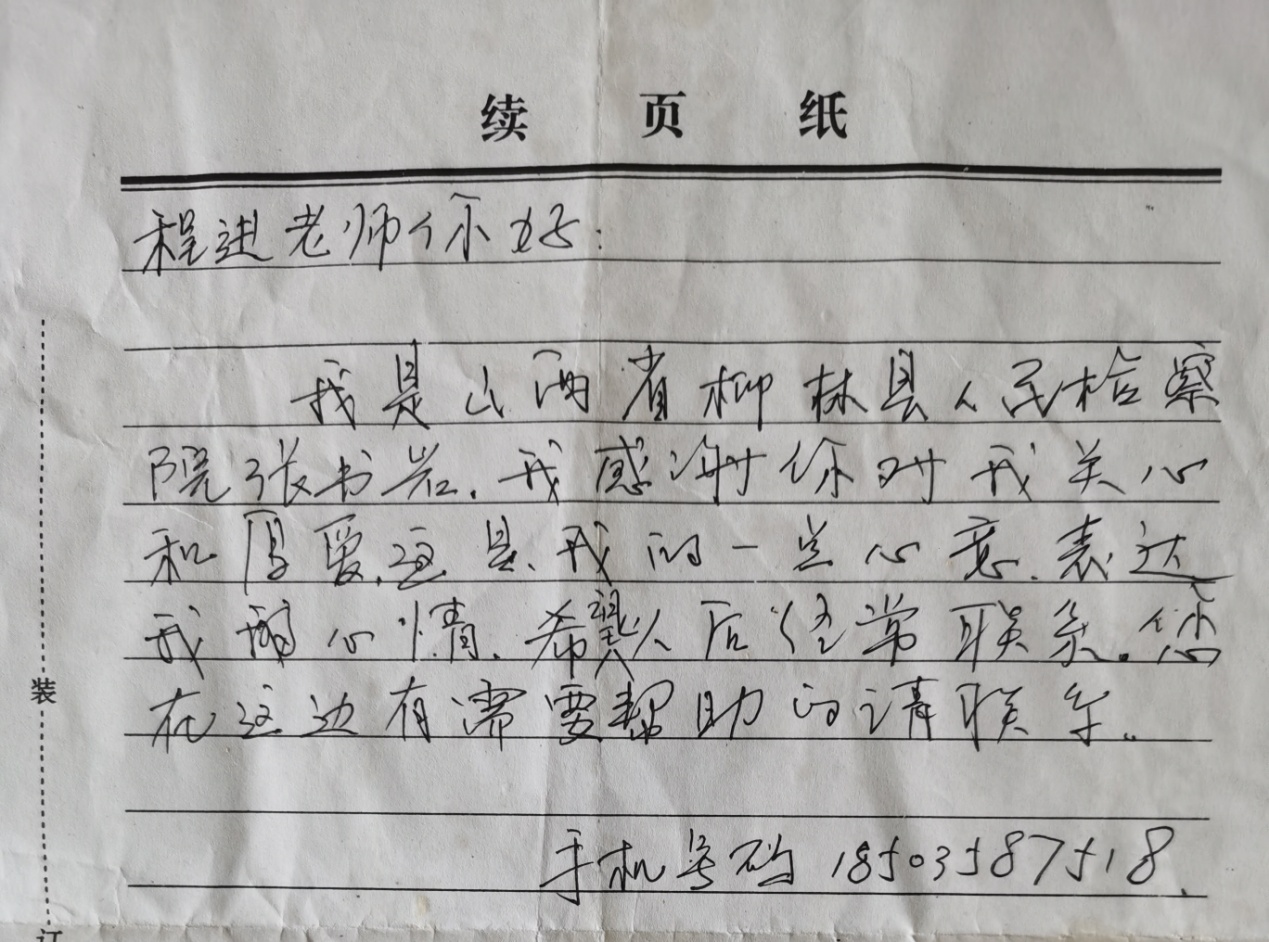 续页纸
程进老师你好:
我是山西省柳林县人民检察
院张书岩.我感谢你对我关心
和厚爱.这是我的一点心意.表达
我的心情.希望以后经常联系。您
在这边有需要帮助的请联系..
手机号码 18503587518.
装
订